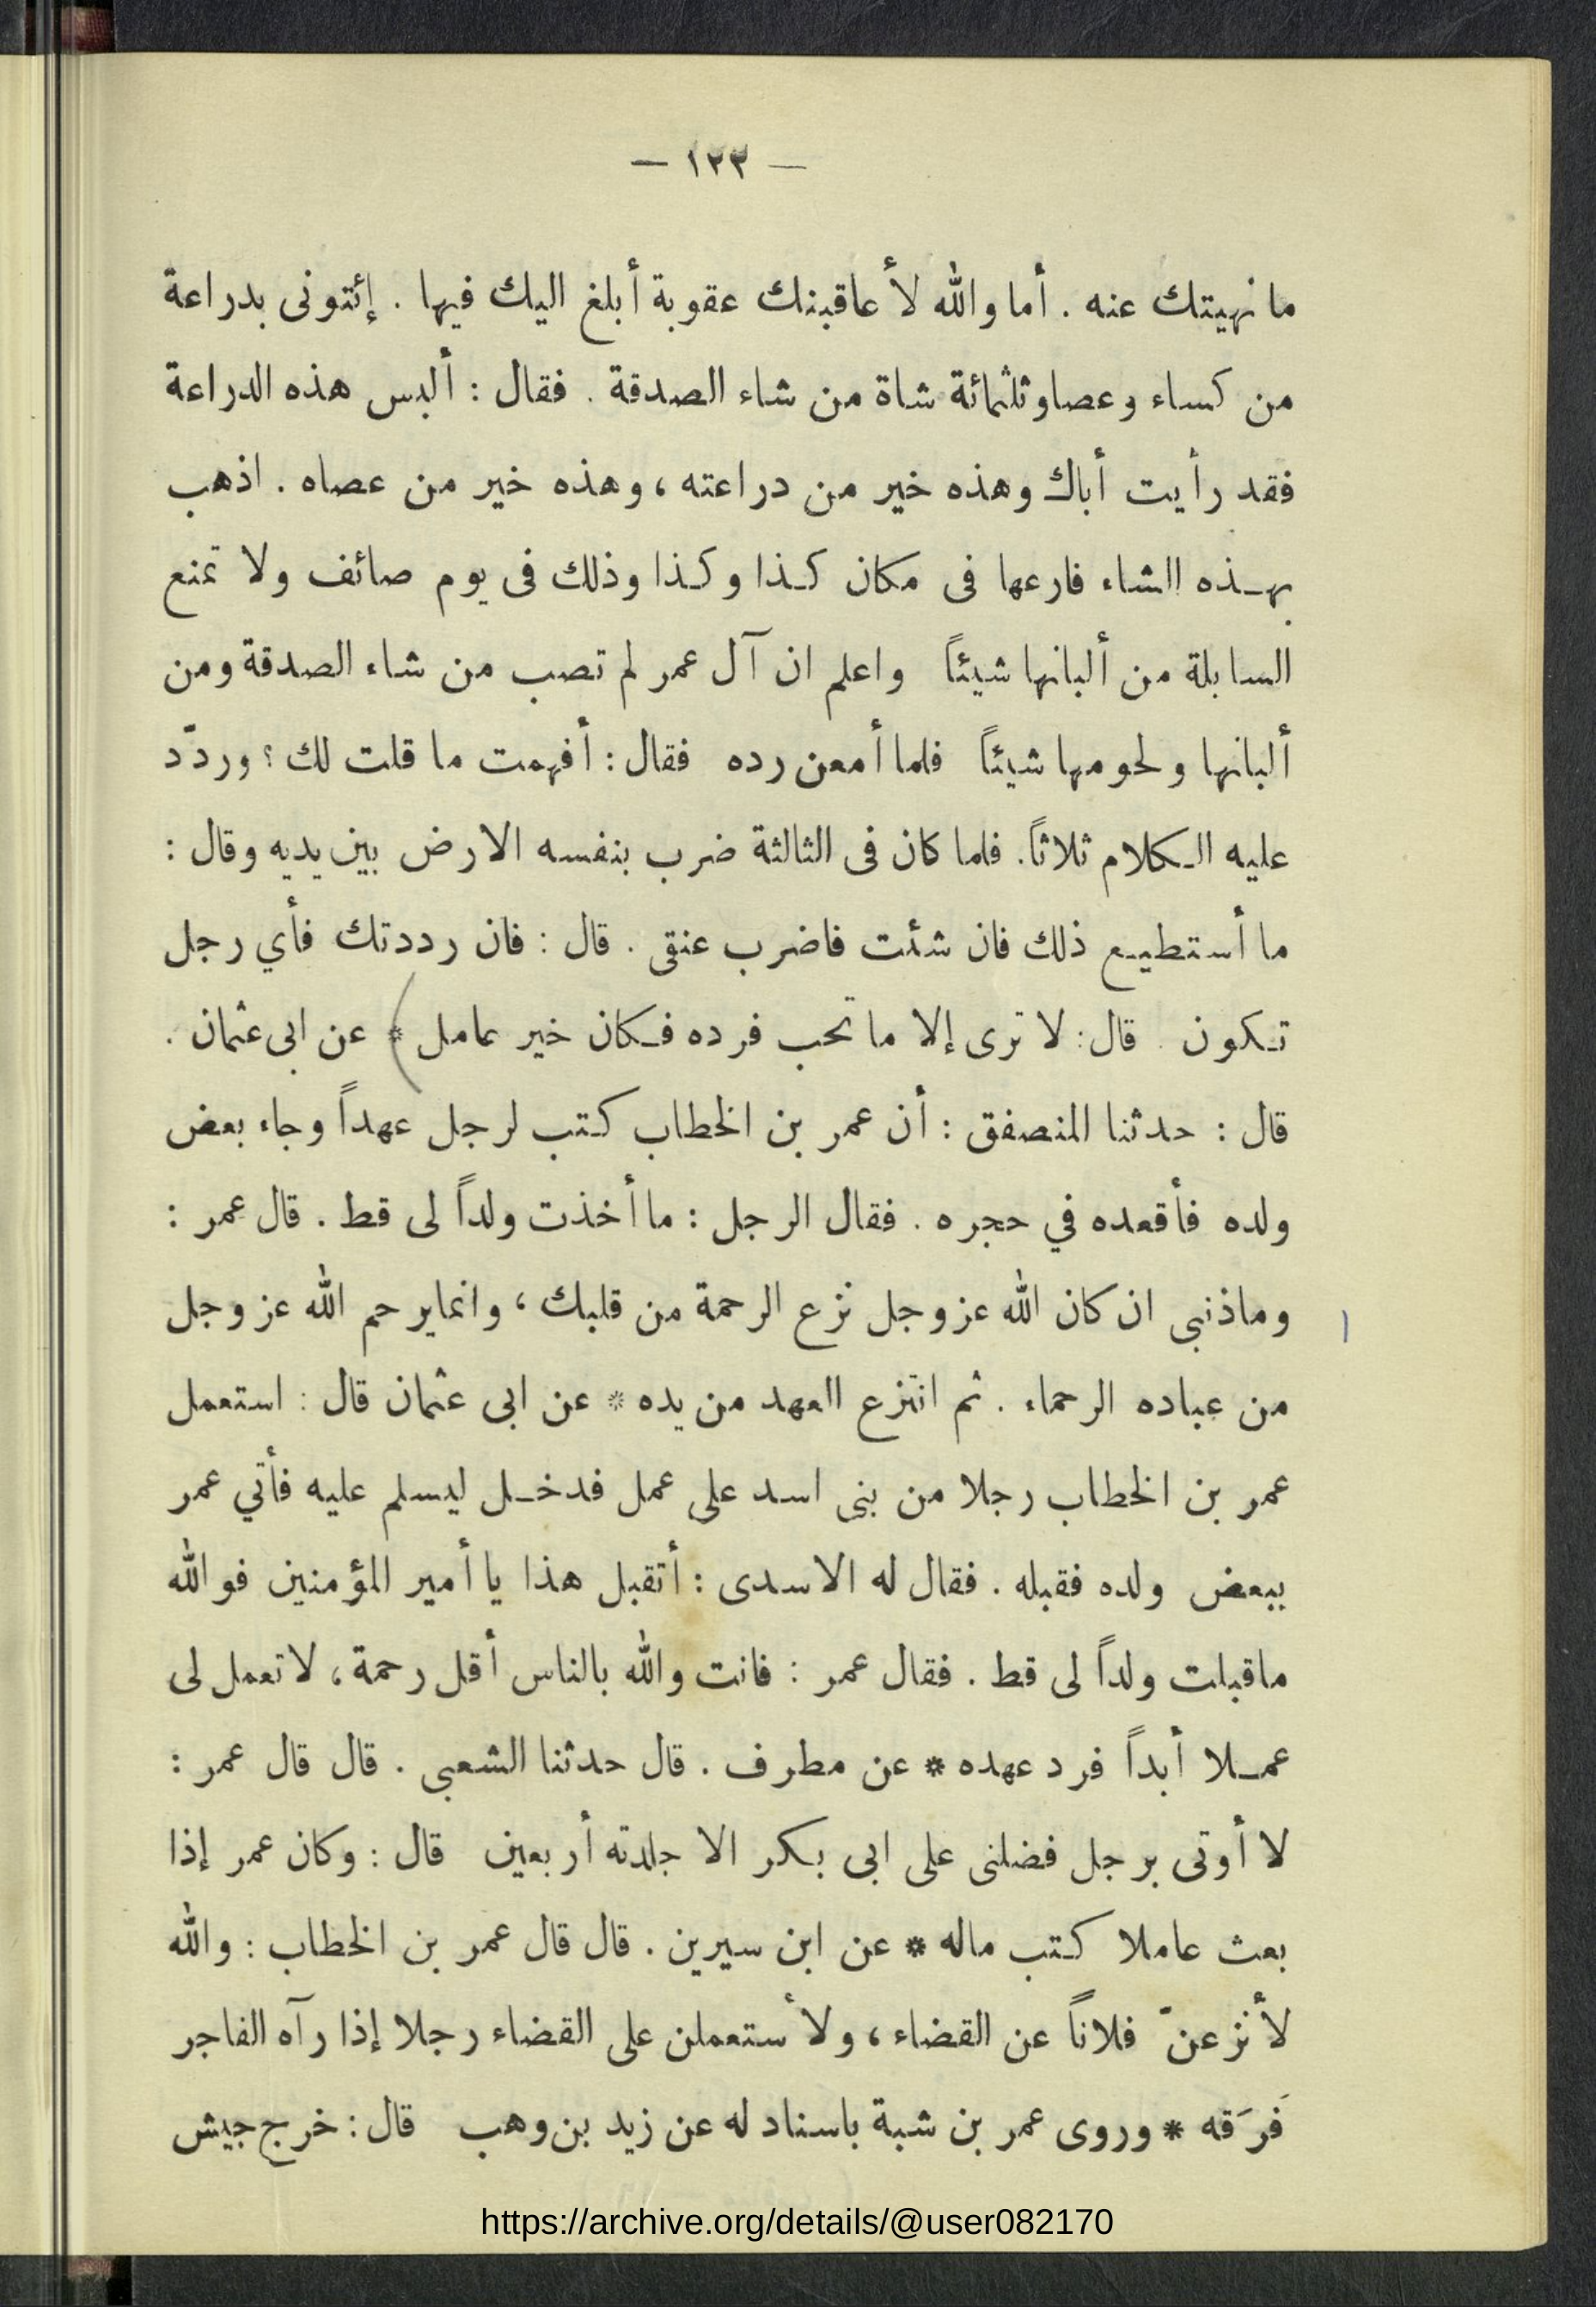 — ١٢٣ —
ما نهيتك عنه . أما والله لأعاقبنك عقوبة أبلغ اليك فيها . إئتونى بدراعة
من كساء وعصا وثلثمائة شاة من شاء الصدقة . فقال : ألبس هذه الدراعة
فقد رأيت أباك وهذه خير من دراعته ، وهذه خير من عصاه . اذهب
بهذه الشاء فارعها فى مكان كذا وكذا وذلك فى يوم صائف ولا تمنع
السابلة من ألبانها شيئاً واعلم ان آل عمر لم تصب من شاء الصدقة ومن
ألبانها ولحومها شيئاً فلما أمعن رده فقال : أفهمت ما قلت لك ؟ وردّد
عليه الكلام ثلاثاً . فلما كان فى الثالثة ضرب بنفسه الارض بين يديه وقال :
ما أستطيع ذلك فان شئت فاضرب عنقى . قال : فان رددتك فأي رجل
تكون . قال : لا ترى إلا ما تحب فرده فكان خير عامل * عن ابى عثمان .
قال : حدثنا المنصفق : أن عمر بن الخطاب كتب لرجل عهداً وجاء بعض
ولده فأقعده في حجره . فقال الرجل : ما أخذت ولداً لى قط . قال عمر :
وماذنبى ان كان الله عز وجل نزع الرحمة من قلبك ، وانما يرحم الله عز وجل
من عباده الرحماء . ثم انتزع العهد من يده * عن ابى عثمان قال : استعمل
عمر بن الخطاب رجلا من بنى اسد على عمل فدخل ليسلم عليه فأتي عمر
ببعض ولده فقبله . فقال له الاسدى : أتقبل هذا يا أمير المؤمنين فوالله
ماقبلت ولداً لى قط . فقال عمر : فانت والله بالناس أقل رحمة ، لا تعمل لى
عملا أبداً فرد عهده * عن مطرف . قال حدثنا الشعبى . قال قال عمر :
لا أوتى برجل فضلنى على ابى بكر الا جلدته أربعين قال : وكان عمر إذا
بعث عاملا كتب ماله * عن ابن سيرين . قال قال عمر بن الخطاب : والله
لأنزعنّ فلاناً عن القضاء ، ولأستعملن على القضاء رجلا إذا رآه الفاجر
فَرَقه * وروى عمر بن شبة باسناد له عن زيد بن وهب قال : خرج جيش
https://archive.org/details/@user082170